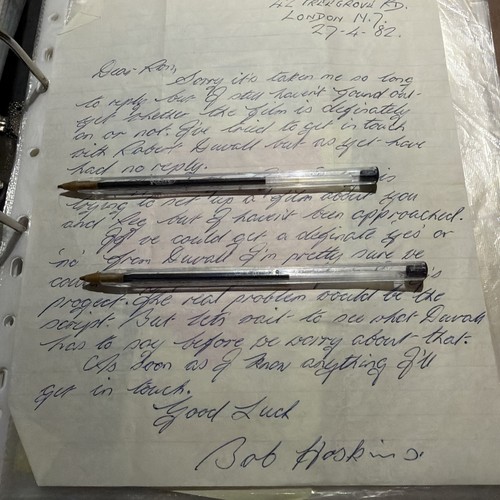 42 TREEGROVE RD.
LONDON N.7.
27-4-82.
Dear Ron,
Sorry it's taken me so long
to reply but I still haven't found out
yet whether the film is definately
on or not. I've tried to get in touch
with Robert Duvall but as yet have
had no reply.
is
trying to set up a film about you
and Reg but I haven't been approached.
If we could get a definate 'yes' or
'no' from Duvall I'm pretty sure we
's
project. The real problem would be the
script. But let's wait to see what Duvall
has to say before we worry about that.
As soon as I know anything I'll
get in touch.
Good Luck
Bob Hoskins.